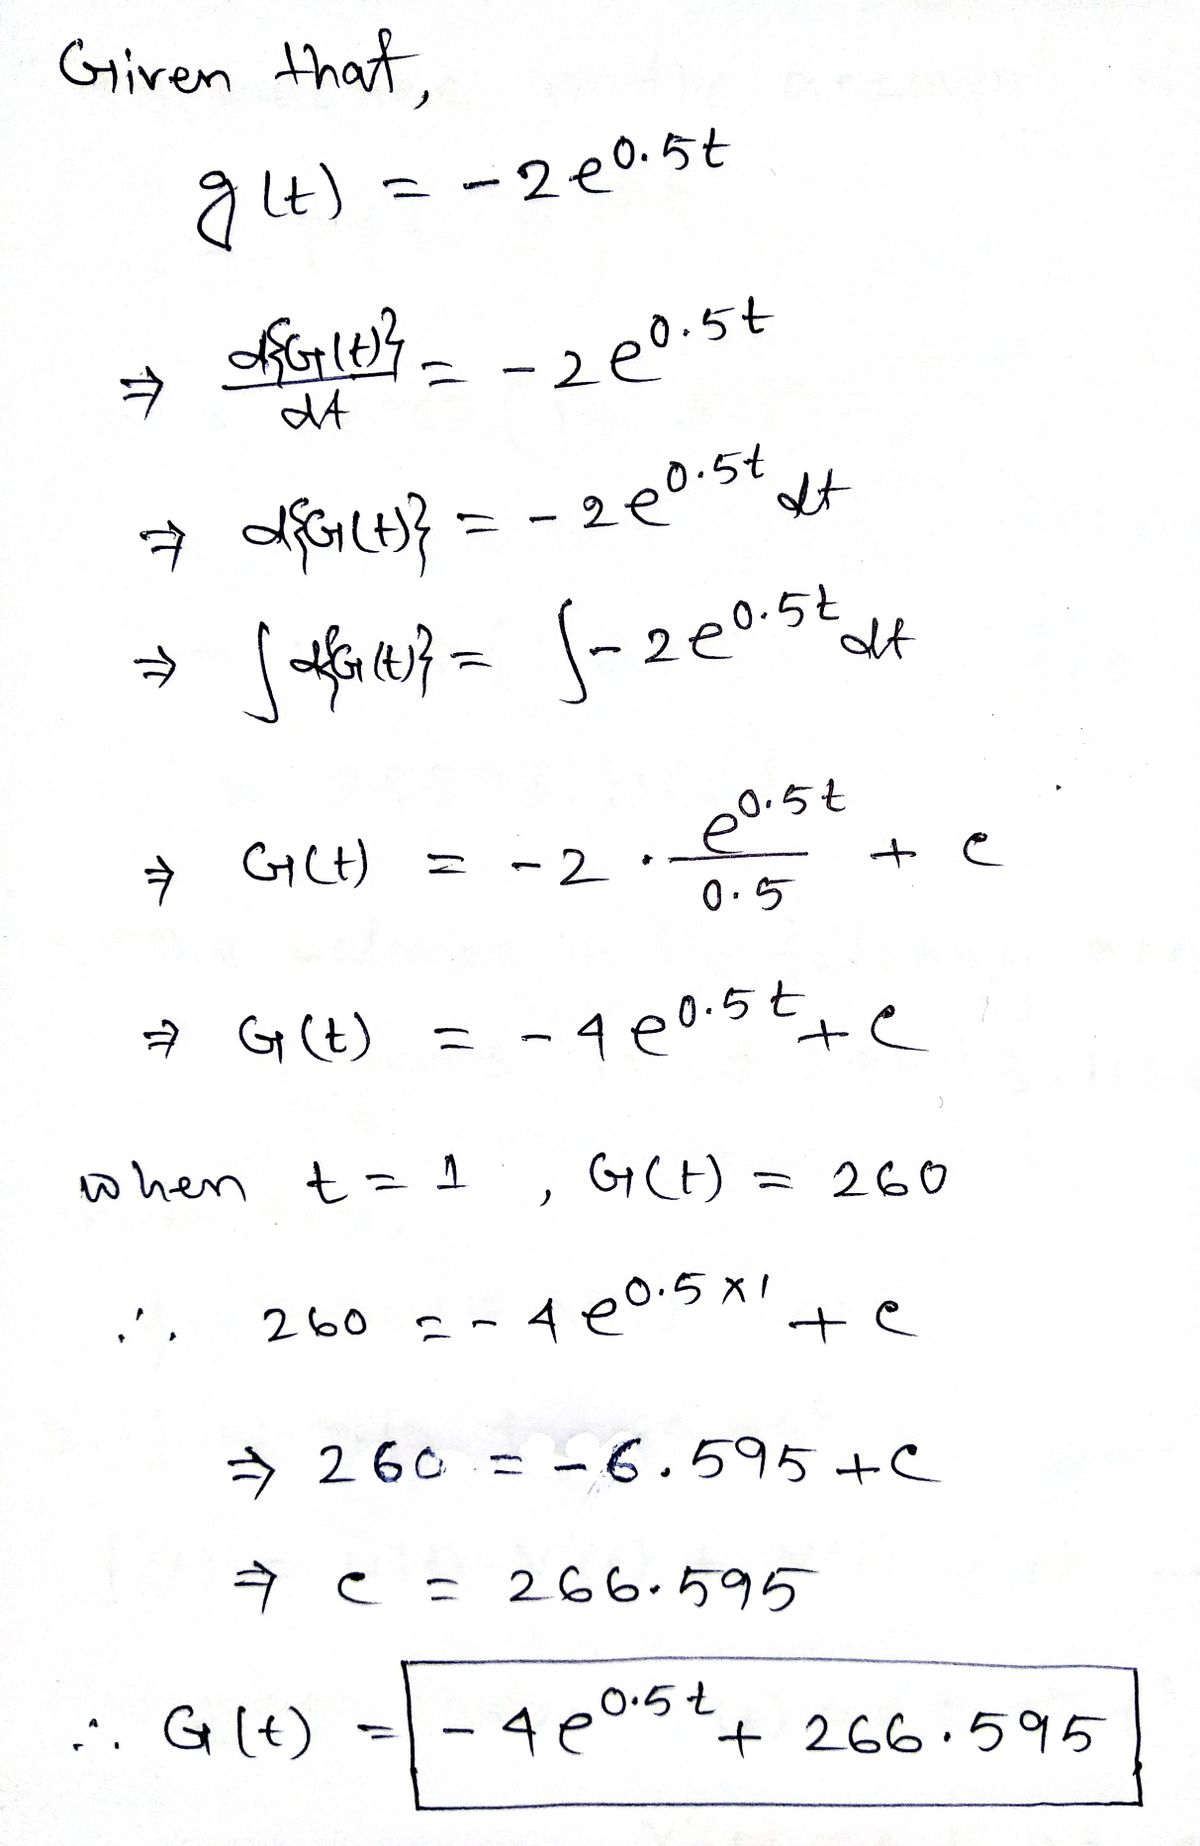 Given that,
g(t) = -2e^0.5t
⇒ d{G(t)}/dt = -2e^0.5t
⇒ d{G(t)} = -2e^0.5t dt
⇒ ∫d{G(t)} = ∫-2e^0.5t dt
⇒ G(t) = -2 · e^0.5t/0.5 + c
⇒ G(t) = -4e^0.5t + c
when t = 1, G(t) = 260
∴ 260 = -4e^0.5×1 + c
⇒ 260 = -6.595 + c
⇒ c = 266.595
∴ G(t) = -4e^0.5t + 266.595